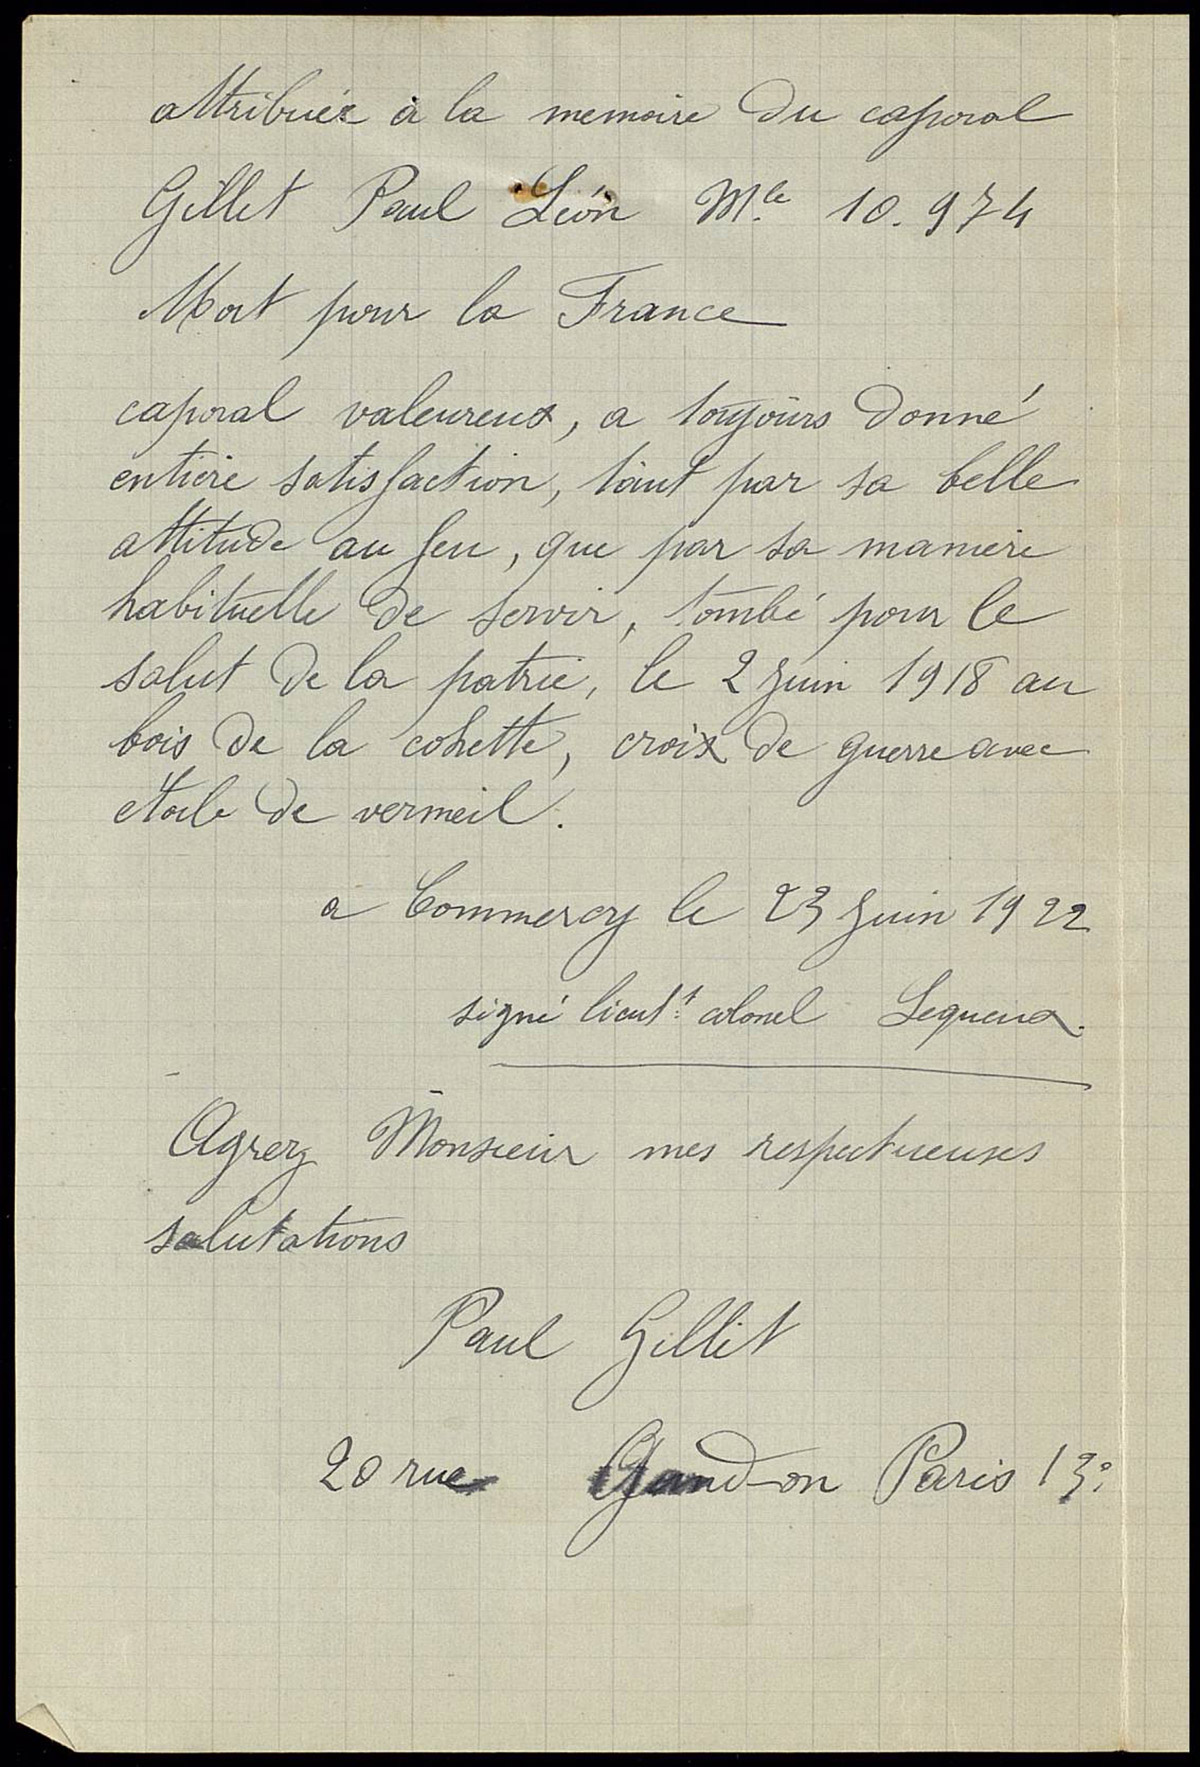 attribuée à la memoire du caporal
Gillet Paul Léon Mle 10.974
Mort pour la France
caporal valeureux, a toujours donné
entière satisfaction, tant par sa belle
attitude au feu, que par sa maniere
habituelle de servir, tombé pour le
salut de la patrie, le 2 juin 1918 au
bois de la cohette, croix de guerre avec
étoile de vermeil.
a Commercy le 23 juin 1922
signé lieutt colonel Lequeux.
Agrez Monsieur mes respectueuses
salutations
Paul Gillet
20 rue Gandon Paris 13e